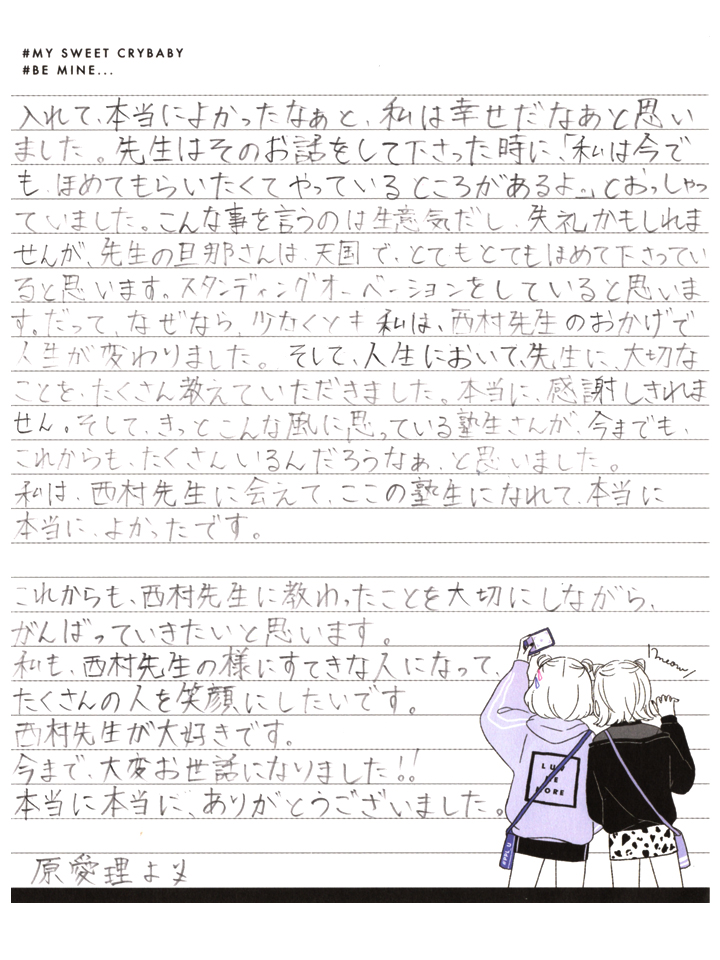 #MY SWEET CRYBABY
#BE MINE...
入れて、本当によかったなぁと、私は幸せだなあと思い
ました。先生はそのお話をして下さった時に、「私は今で
も、ほめてもらいたくてやっているところがあるよ。」とおっしゃっ
ていました。こんな事を言うのは生意気だし、失礼かもしれま
せんが、先生の旦那さんは、天国で、とてもとてもほめて下さってい
ると思います。スタンディングオーベーションをしていると思いま
す。だって、なぜなら、少なくとも私は、西村先生のおかげで
人生が変わりました。そして、人生において、先生に、大切な
ことを、たくさん教えていただきました。本当に、感謝しきれま
せん。そして、きっとこんな風に思っている塾生さんが、今までも、
これからも、たくさんいるんだろうなぁ、と思いました。
私は、西村先生に会えて、ここの塾生になれて、本当に
本当に、よかったです。
これからも、西村先生に教わったことを大切にしながら、
がんばっていきたいと思います。
私も、西村先生の様にすてきな人になって、
たくさんの人を笑顔にしたいです。
西村先生が大好きです。
今まで、大変お世話になりました!!
本当に本当に、ありがとうございました。
原愛理より
meow
LUV
ME
MORE